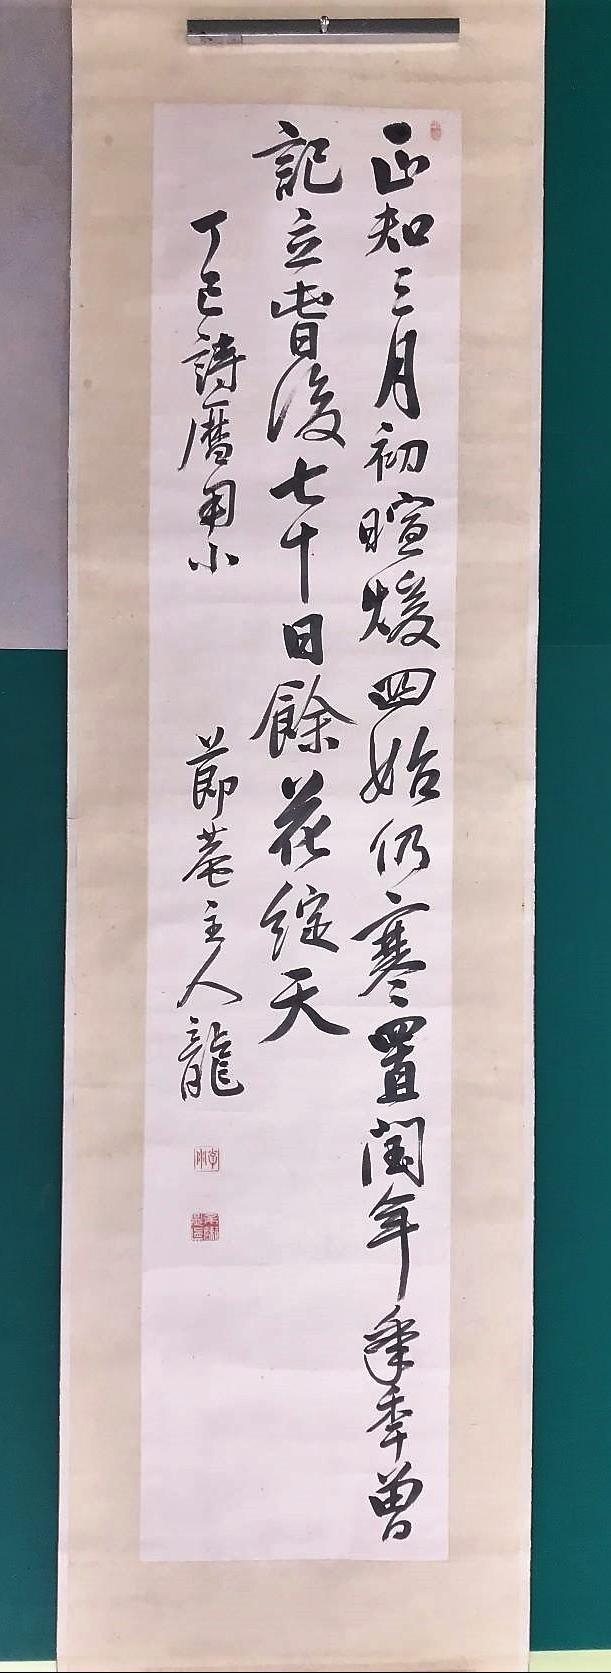 正知三月初暄煖四始仍寒置閏年逢秊曽
記立旾後七十日餘花綻天
丁巳詩暦用小
節菴主人龍